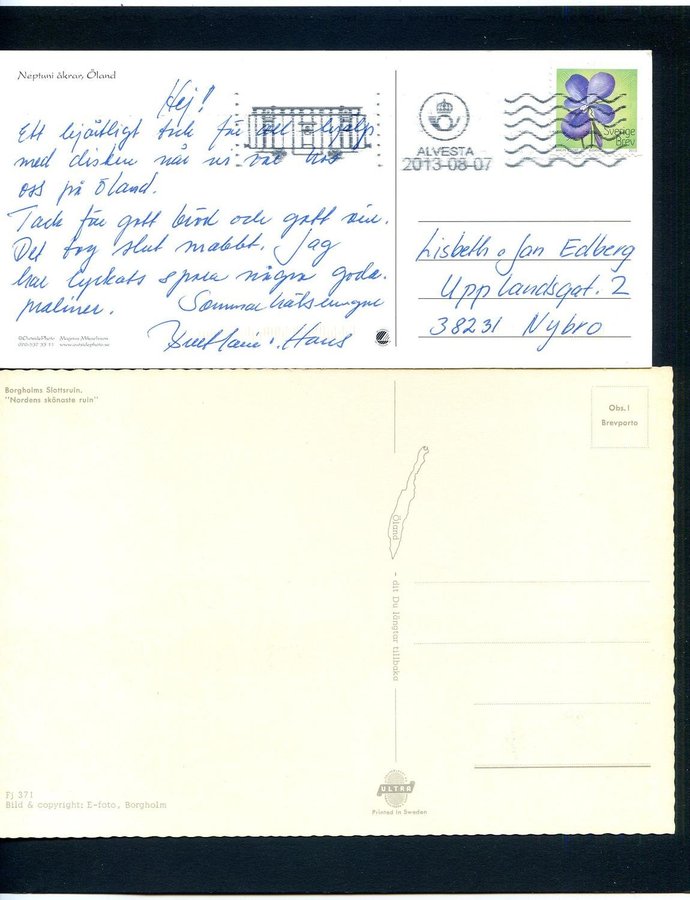 Neptuni åkrar, Öland
Hej!
Ett hjärtligt tack för all hjälp
med disken när ni var hos
oss på Öland.
Tack för gott bröd och gott vin.
Det tog slut snabbt. Jag
har lyckats spara några goda
praliner. Sommarhälsningar
Hans
©OutsidePhoto Magnus Mikaelsson
070-537 33 11 www.outsidephoto.se
ALVESTA
2013-08-07
Sverige
Brev
Lisbeth o Jan Edberg
Upplandsgat. 2
38231 Nybro
Borgholms Slottsruin.
"Nordens skönaste ruin"
Obs.!
Brevporto
Öland
- dit Du längtar tillbaka
Fj 371
Bild & copyright: E-foto, Borgholm
ULTRA
Printed in Sweden